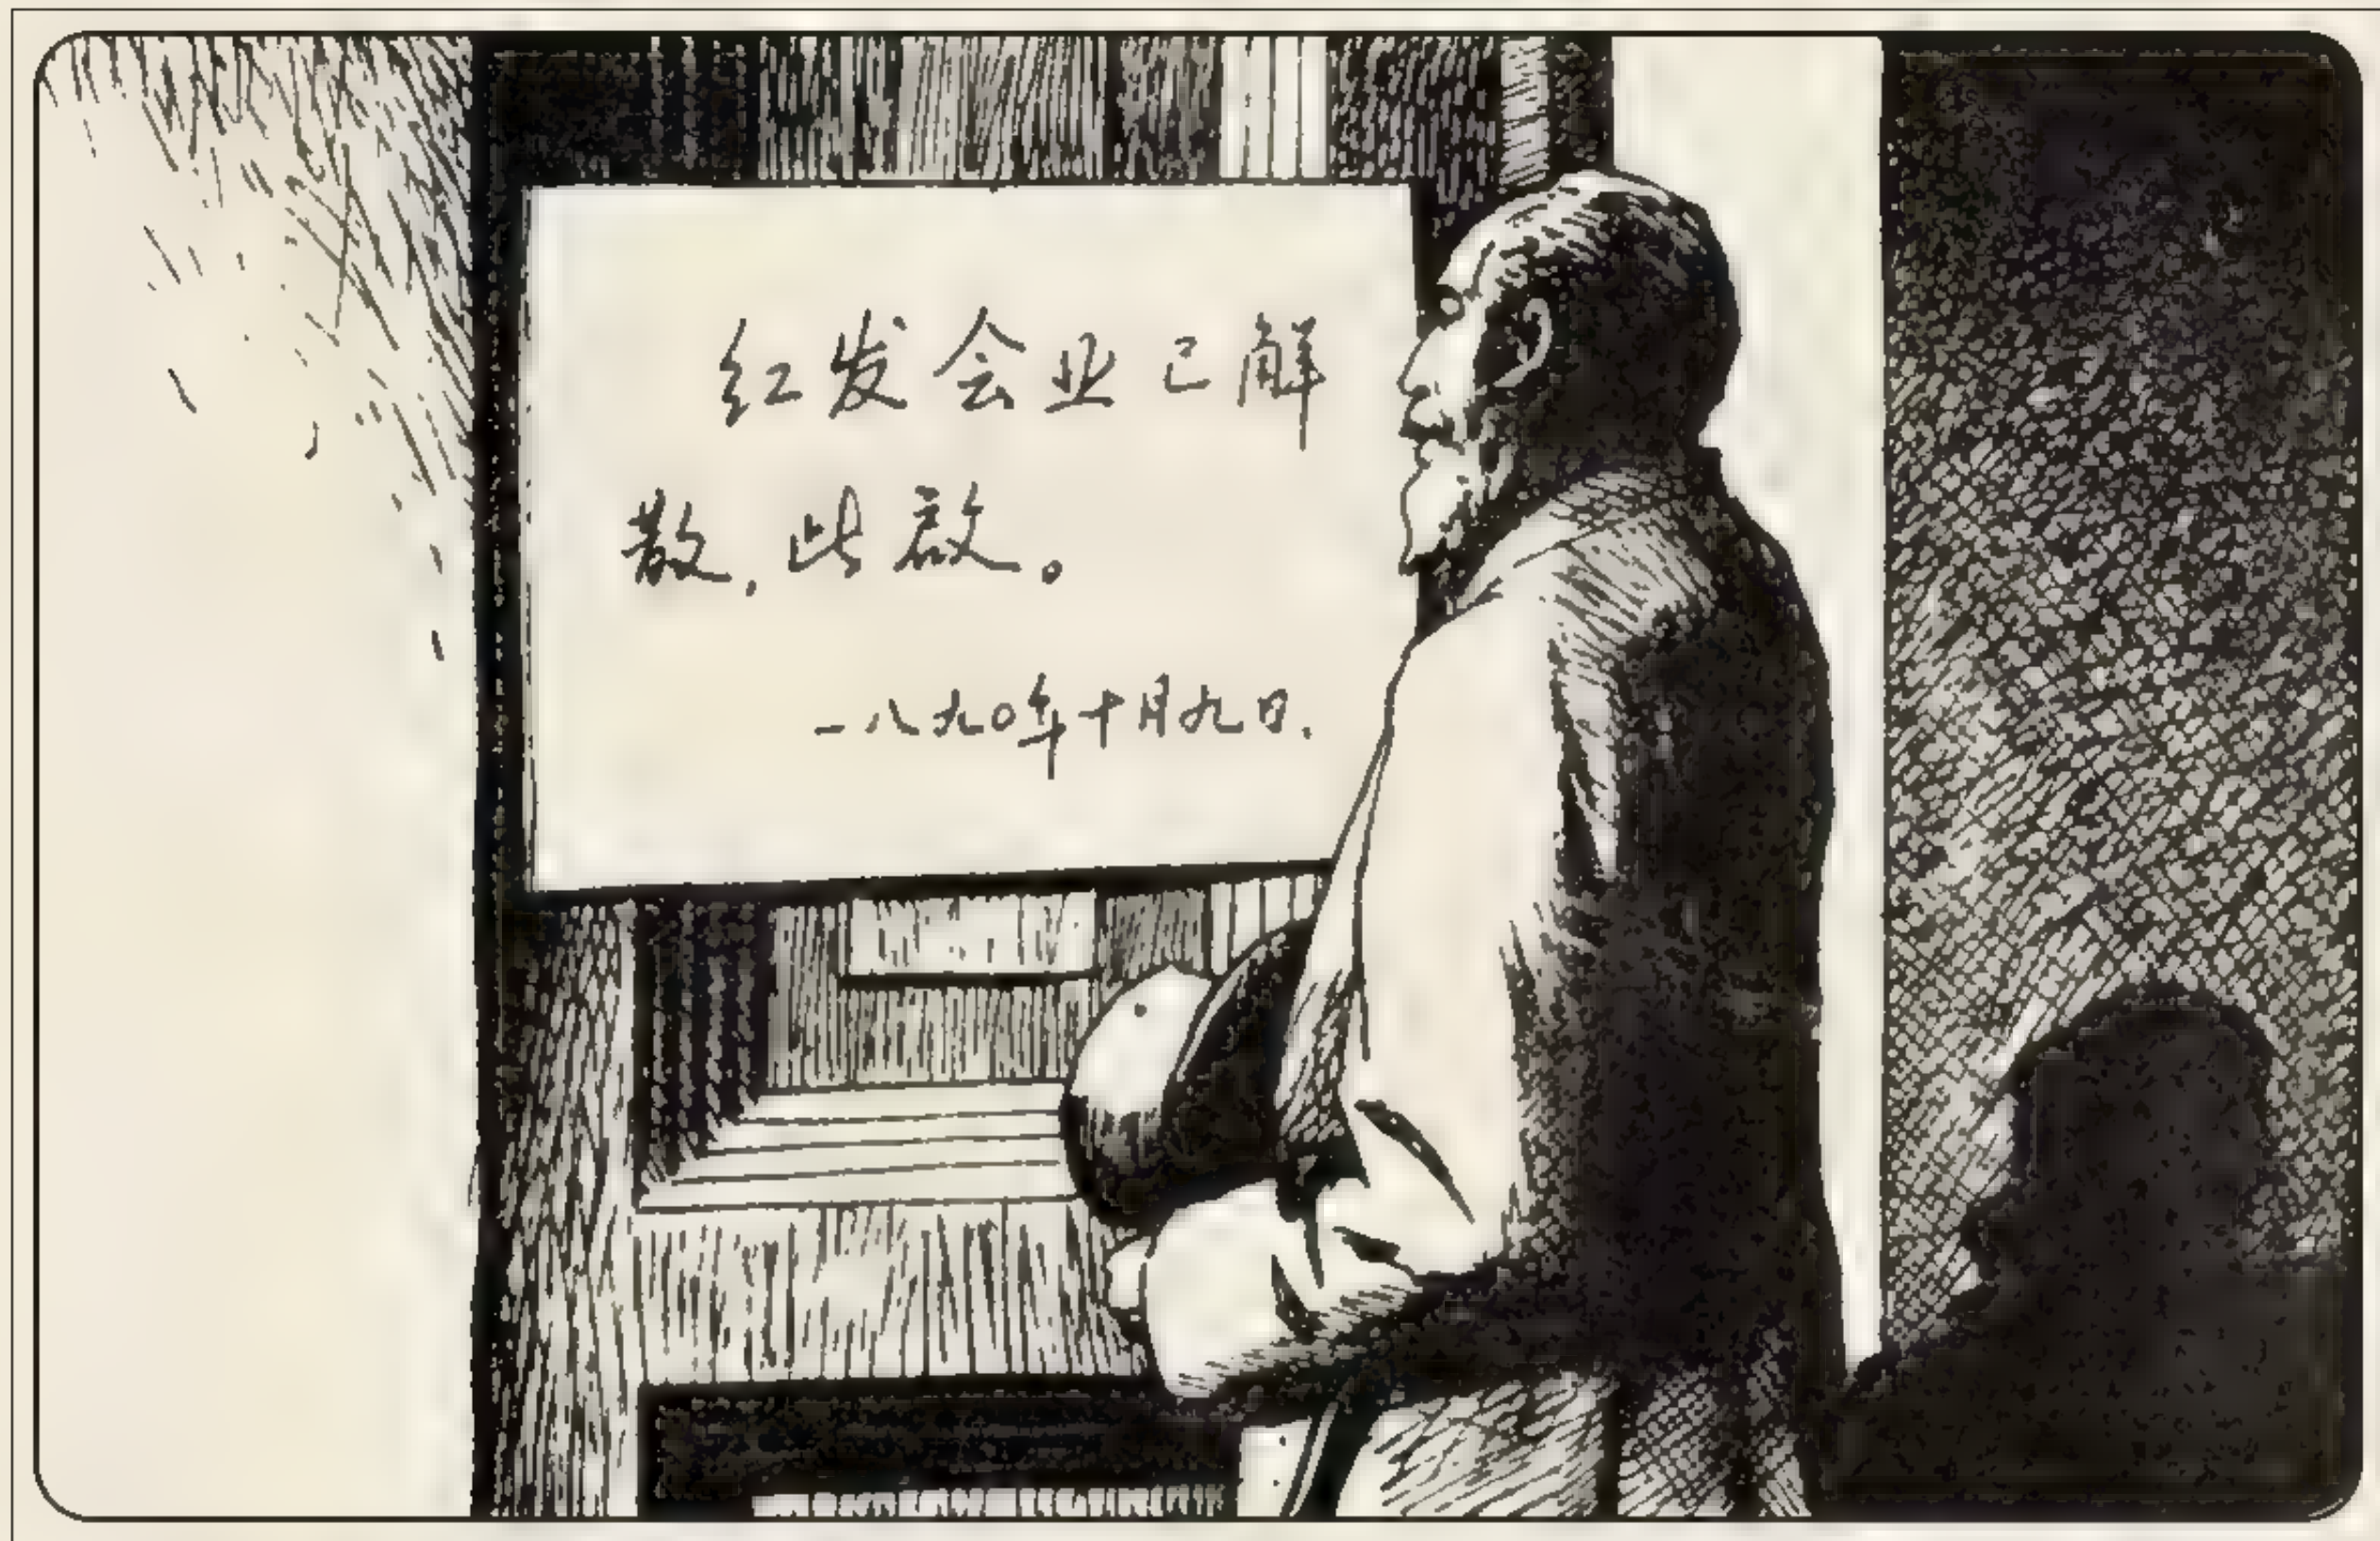 红发会业已解
散,此启。
一八九〇年十月九日.